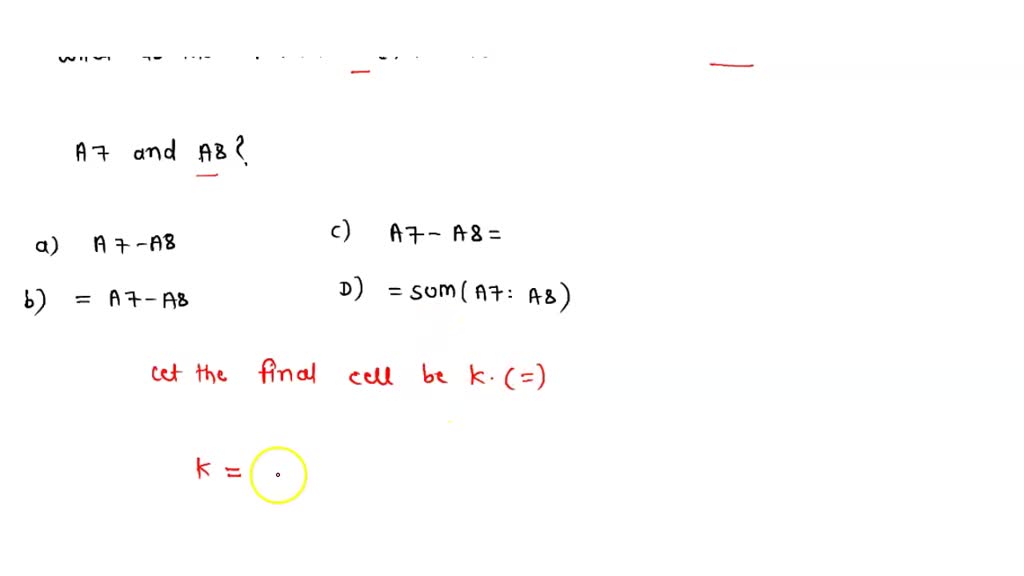 A7 and A8?
a) A7-A8
b) = A7-A8
c) A7- A8=
D) = sum(A7: A8)
Let the final cell be k. (=)
k =